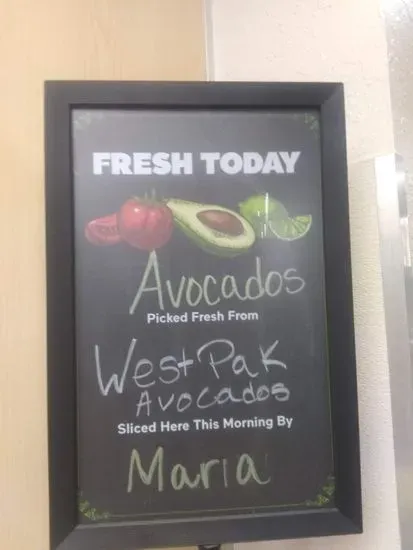 FRESH TODAY
Avocados
Picked Fresh From
West Pak
Avocados
Sliced Here This Morning By
Maria